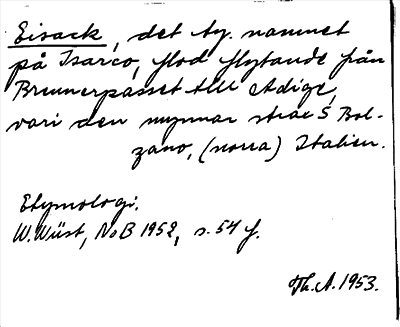 Eisack, det ty. namnet
på Isarco, flod flytande från
Brennerpasset till Adige,
vari den mynnar strax S Bol-
zano, (norra) Italien.
Etymologi.
W. Wüst, NoB 1952, s. 54 f.
Th. A. 1953.